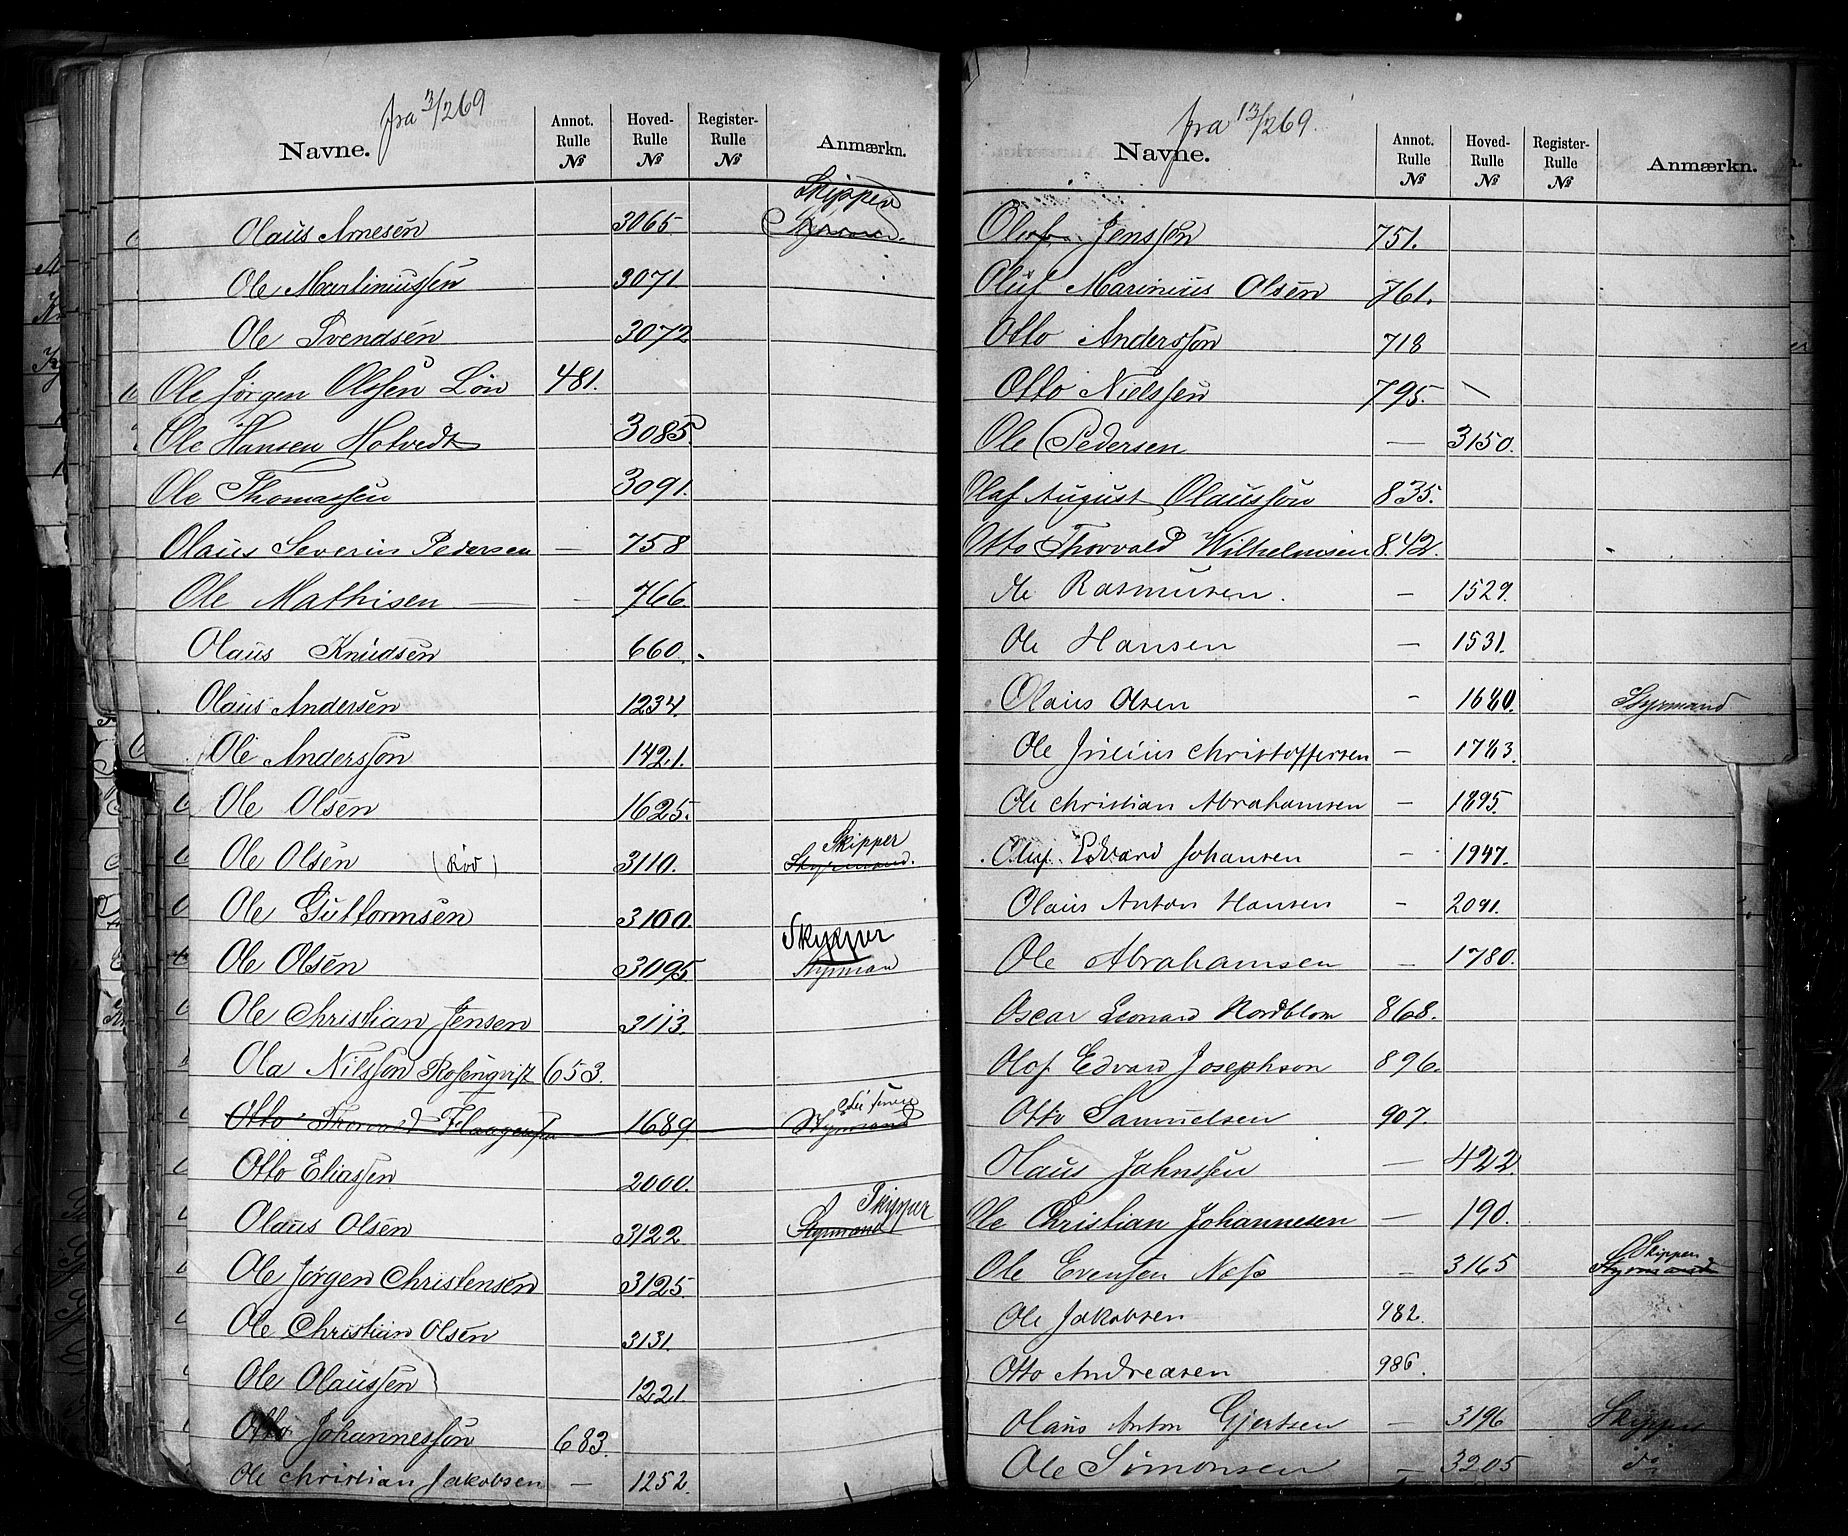 fra 3/269
Navne. Annot. Rulle № Hoved-Rulle № Register-Rulle № Anmærkn.
Skipper
Olaus Arnesen 3065. Styrmand.
Ole Martinussen 3071
Ole Svendsen 3072
Ole Jørgen Olssen Løn 481.
Ole Hansen Hotvedt 3085.
Ole Thomassen 3091.
Olaus Severin Pedersen — 758
Ole Mathisen — - 766.
Olaus Knudsen 660.
Olaus Andersen 1234.
Ole Anderssøn 1421.
Ole Olsen 1625.
Skipper
Ole Olsen (Röd) 3110. Styrmand.
Ole Guttormsen 3100.
Skipper
Ole Olsen 3095 Styrmand
Ole Christian Jensen 3113.
Ola Nilsson Rosenqvist 653.
Otto Thorvald 1689 Styrmand
Otto Eliassen 2000.
Skipper
Olaus Olsen 3122 Styrmand
Ole Jørgen Christensen 3125.
Ole Christian Olsen 3131.
Ole Olaussen 1221.
Otto Johannessøn 683.
Ole Christian Jakobsen — 1252.
fra 13/269.
Navne. Annot. Rulle № Hoved-Rulle № Register-Rulle № Anmærkn.
Olof Jenssen 751.
Oluf Marinius Olsen 761.
Otto Anderssøn 718
Otto Nielssen 795.
Ole Pedersen — 3150.
Olaf August Olaussøn 835.
Otto Thorvald Wilhelmsen 842.
Ole Rasmusen. — 1529.
Ole Hansen — 1531.
Olaus Olsen - 1680. Styrmand
Ole Julius Christoffersen - 1783.
Ole Christian Abrahamsen - 1895.
Oluf Edvard Johansen - 1947.
Olaus Anton Hansen - 2091.
Ole Abrahamsen - 1780.
Oscar Leonard Nordblom 868.
Olof Edvard Josephson 896.
Otto Samuelsen 907.
Olaus Johnssen — 422
Ole Christian Johannesen — 190.
Skipper
Ole Evensen Næss - 3165 Styrmand
Ole Jakobsen 982.
Otto Andreasen 986.
Olaus Anton Gjertsen - 3196 Skipper
Ole Simonsen - 3205 do